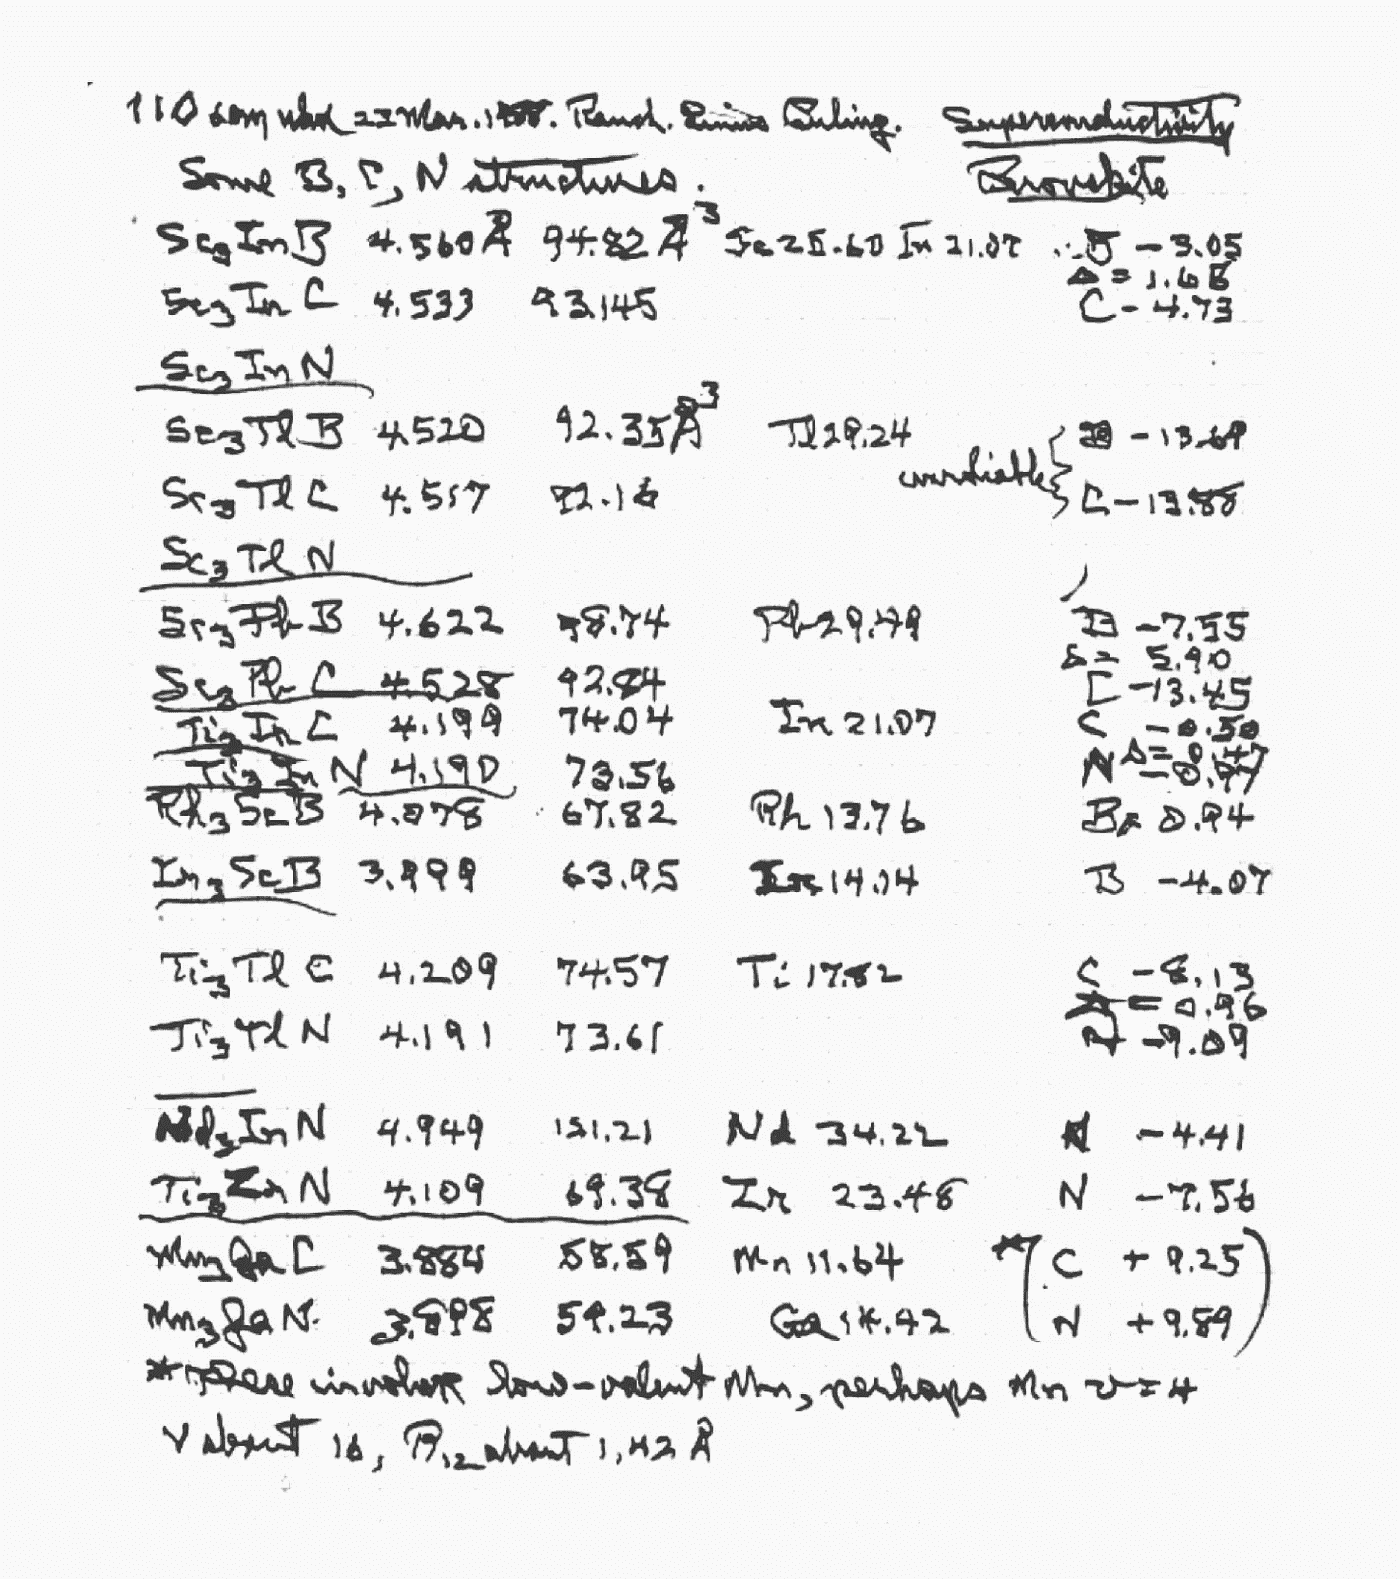 110 6am Wed 23 Mar. Ranch. Linus Pauling. Superconductivity
Some B, C, N structures. Perovskite
Sc3InB 4.560Å 94.82Å3 Sc 25.60 In 21.07 ∴ B - 3.05
Δ = 1.68
Sc3InC 4.533 93.145 C - 4.73
Sc3InN
Sc3TlB 4.520 92.35Å3 Tl 29.24 B - 13.69
unreliable {
Sc3TlC 4.517 92.16 C - 13.88
Sc3TlN
Sc3PbB 4.622 98.74 Pb 29.49 B - 7.55
Δ = 5.90
Sc3PbC 4.528 92.84 C - 13.45
Ti3InC 4.199 74.04 In 21.07 C - 0.50
Δ = 0.47
Ti3InN 4.190 73.56 N - 0.97
Rh3ScB 4.078 67.82 Rh 13.76 B 0.94
In3ScB 3.999 63.95 14.14 B - 4.07
Ti3TlC 4.209 74.57 Ti 17.82 C - 8.13
Δ = 0.96
Ti3TlN 4.191 73.61 N - 9.09
Nd3InN 4.949 121.21 Nd 34.22 N - 4.41
Ti3ZnN 4.109 69.38 Zr 23.48 N - 7.56
Mn3GaC 3.884 58.59 Mn 11.64 *( C + 9.25 )
Mn3GaN 3.898 59.23 Ga 18.42 N + 9.89
* These involve low-valent Mn, perhaps Mn v = 4
V about 16, R12 about 1.42 Å